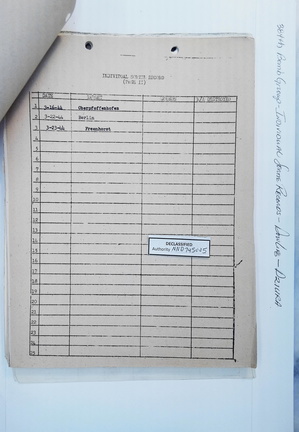 INDIVIDUAL SORTIE RECORD
(PAGE II)
DATE TARGET E/A DESTROYED
1 3-18-44 Oberpfaffenhofen
2 3-22-44 Berlin
3 3-23-44
4
5
6
7
8
9
10
11
12
13
14
15
16
17
18
19
20
21
22
23
24
25
DECLASSIFIED
Authority NND 745005
Bomb Group - Individual Sortie Records -